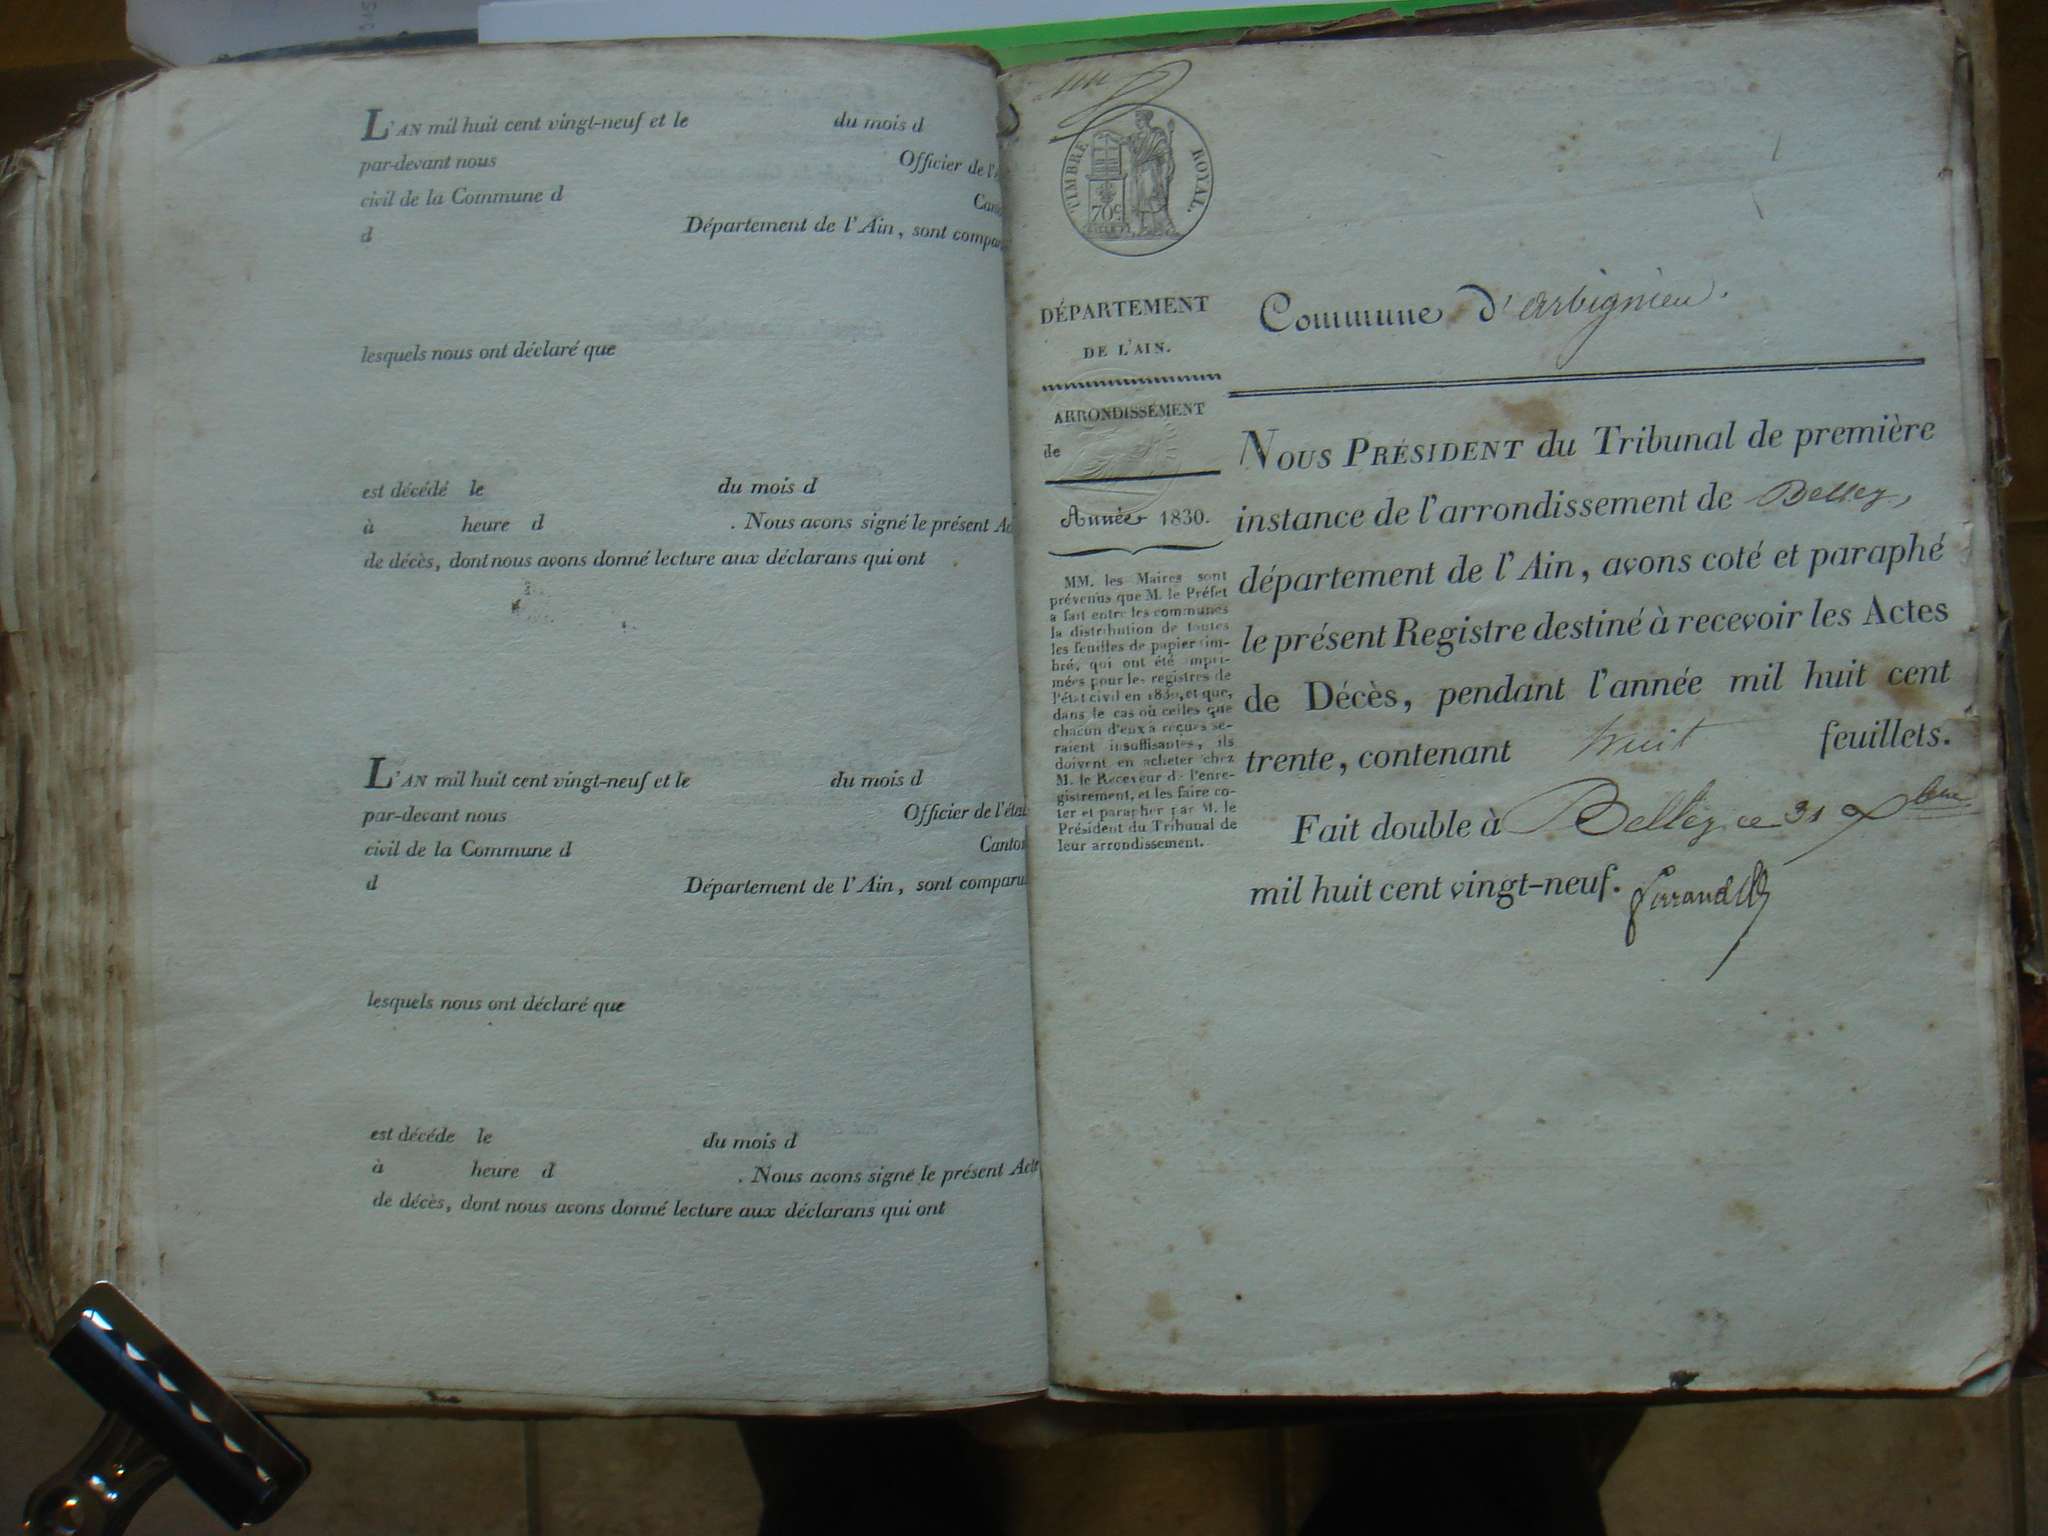 L'AN mil huit cent vingt-neuf et le du mois d
par-devant nous Officier de l'
civil de la Commune d
d Département de l'Ain, sont compar
lesquels nous ont déclaré que
est décédé le du mois d
à heure d . Nous avons signé le présent
de décès, dont nous avons donné lecture aux déclarans qui ont
L'AN mil huit cent vingt-neuf et le du mois d
par-devant nous Officier de l'état
civil de la Commune d Canton
d Département de l'Ain, sont comparu
lesquels nous ont déclaré que
est décéde le du mois d
à heure d . Nous avons signé le présent Acte
de décès, dont nous avons donné lecture aux déclarans qui ont
TIMBRE ROYAL.
70c
DÉPARTEMENT
DE L'AIN.
ARRONDISSEMENT
de
Année 1830.
MM. les Maires sont
prévenus que M. le Préfet
a fait entre les communes
la distribution de toutes
les feuilles de papier tim-
bré, qui ont été impri-
mées pour les registres de
l'état civil en 1830, et que,
dans le cas où celles que
chacun d'eux a reçues se-
raient insuffisantes, ils
doivent en acheter chez
M. le Receveur de l'enre-
gistrement, et les faire co-
ter et parapher par M. le
Président du Tribunal de
leur arrondissement.
Commune d'arbignieu.
NOUS PRÉSIDENT du Tribunal de première
instance de l'arrondissement de Belley,
département de l'Ain, avons coté et paraphé
le présent Registre destiné à recevoir les Actes
de Décès, pendant l'année mil huit cent
trente, contenant huit feuillets.
Fait double à Belley ce 31 Xbre
mil huit cent vingt-neuf.